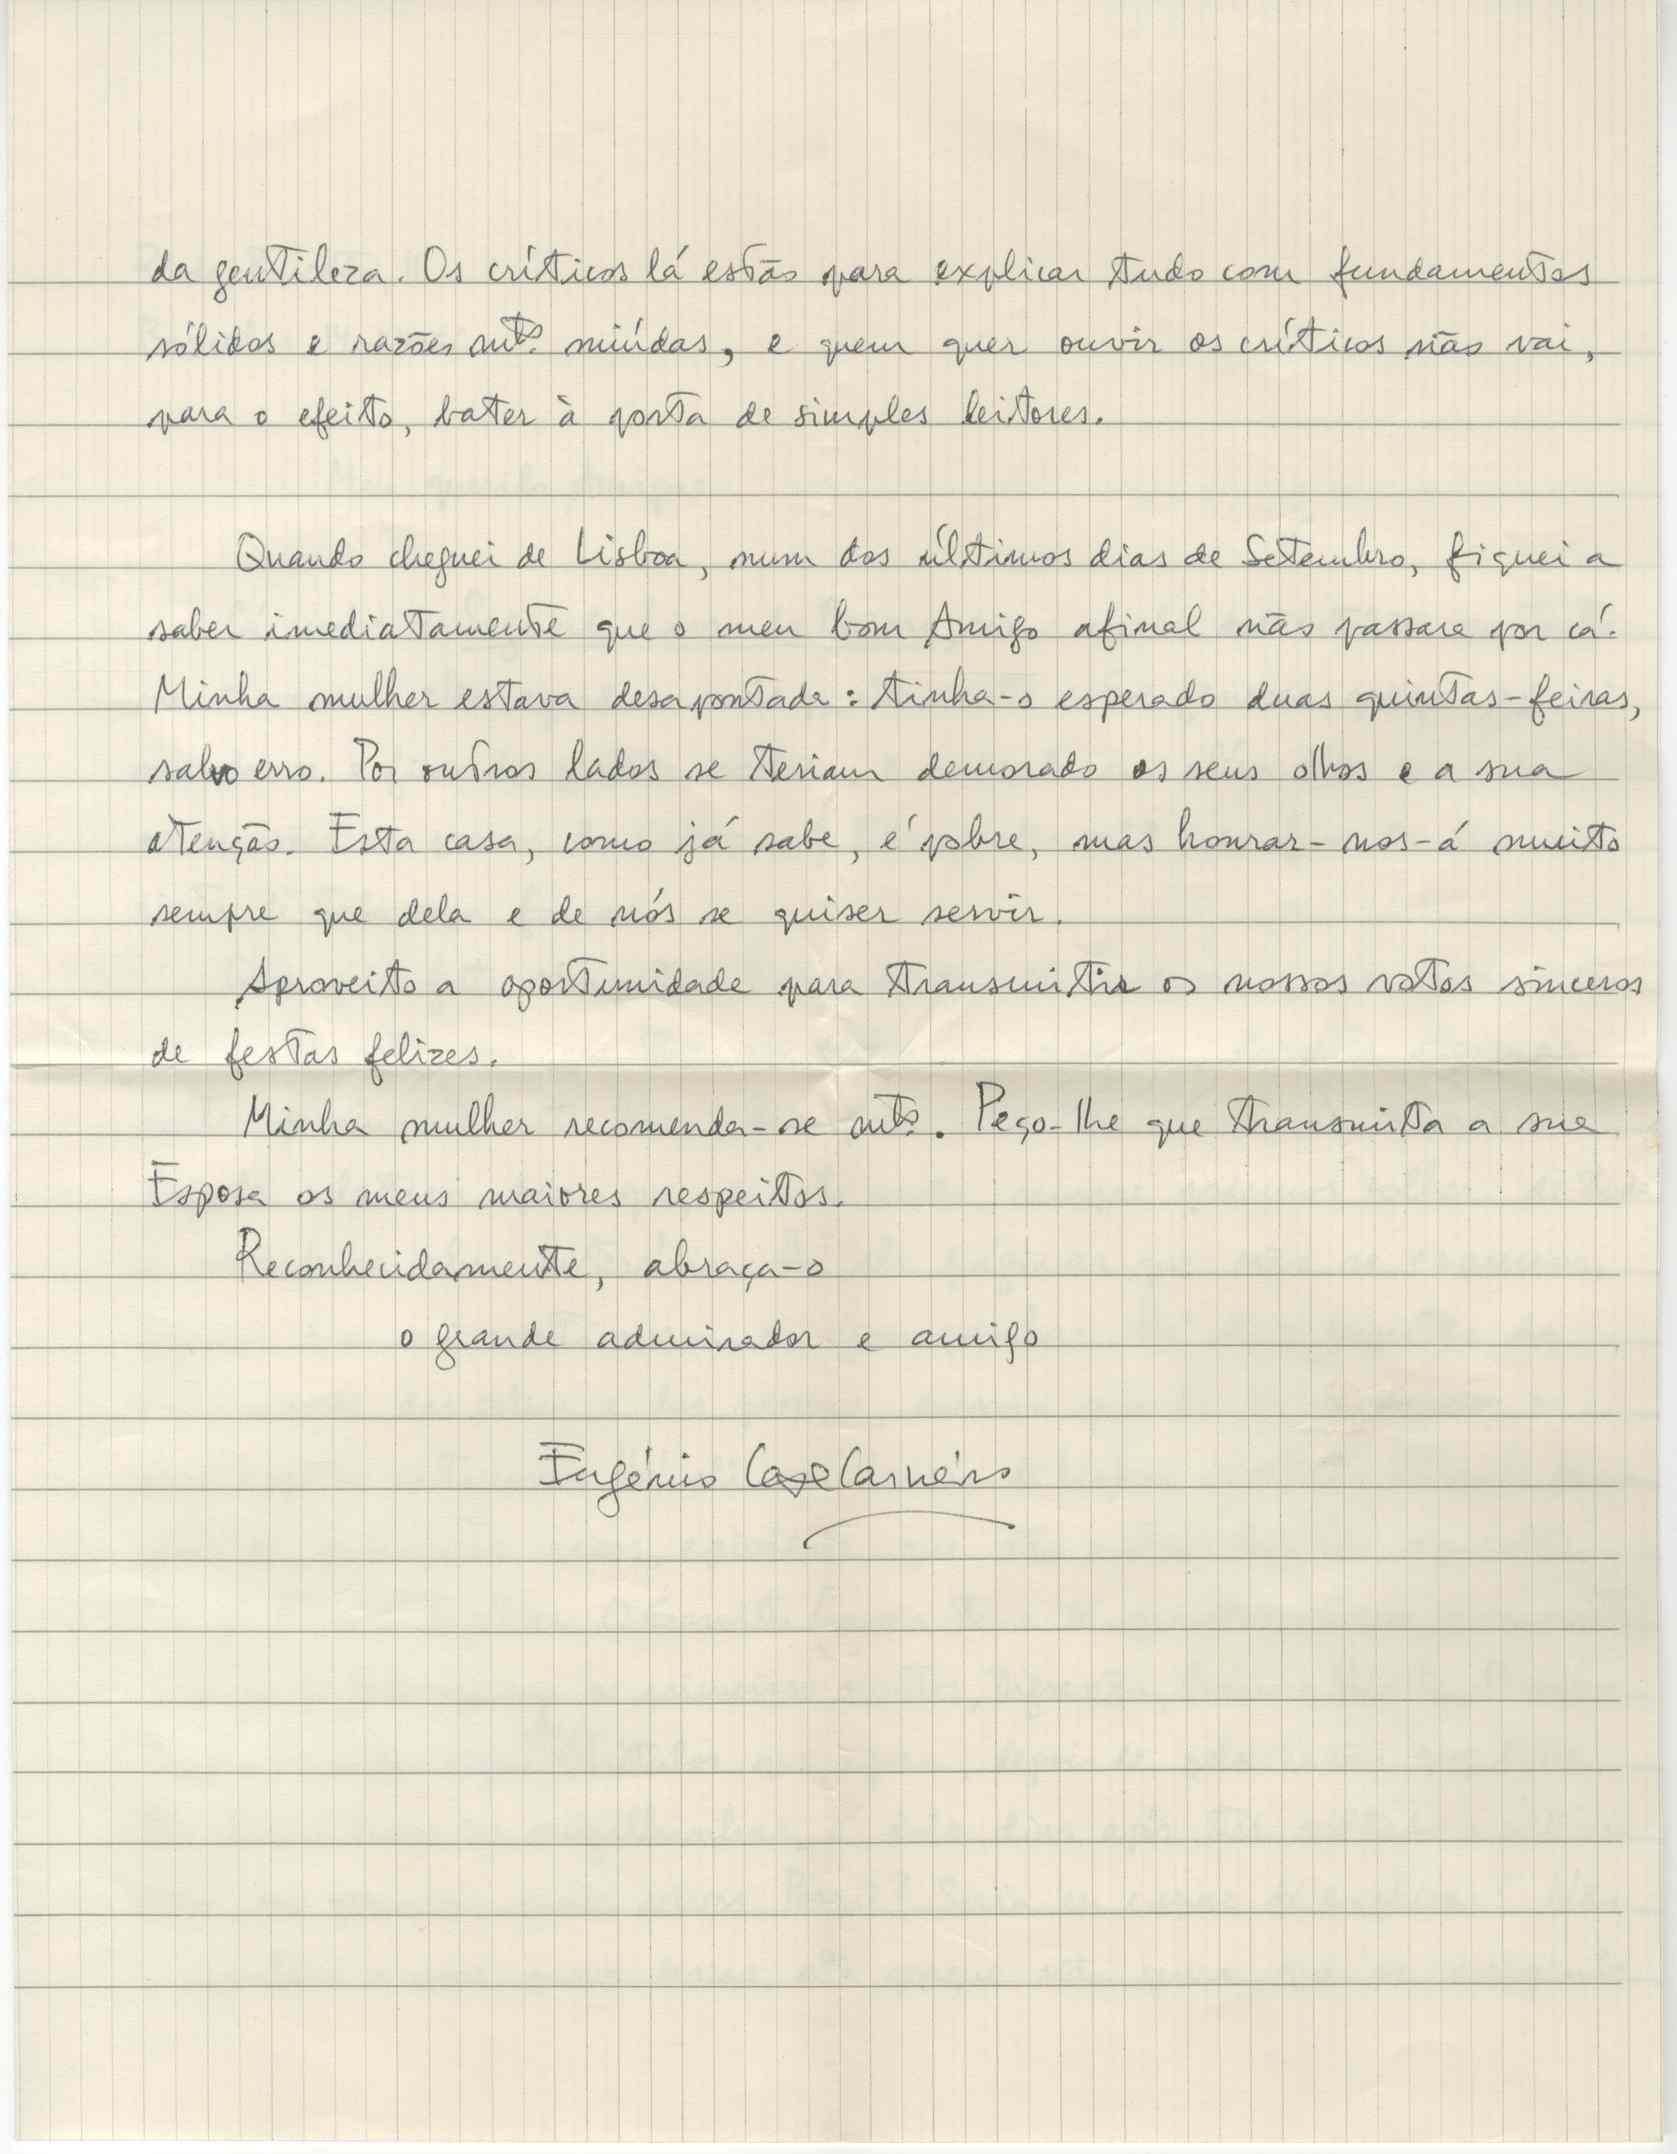 da gentileza. Os críticos lá estão para explicar tudo com fundamentos
sólidos e razões mtº. miúdas, e quem quer ouvir os críticos não vai,
para o efeito, bater à porta de simples leitores.
Quando cheguei de Lisboa, num dos últimos dias de Setembro, fiquei a
saber imediatamente que o meu bom Amigo afinal não passara por cá.
Minha mulher estava desapontada: tinha-o esperado duas quintas-feiras,
salvo erro. Por outros lados se teriam demorado os seus olhos e a sua
atenção. Esta casa, como já sabe, é pobre, mas honrar-nos-á muito
sempre que dela e de nós se quiser servir.
Aproveito a oportunidade para transmitir os nossos votos sinceros
de festas felizes.
Minha mulher recomenda-se mtº. Peço-lhe que transmita a sua
Esposa os meus maiores respeitos.
Reconhecidamente, abraça-o
o grande admirador e amigo
Eugénio